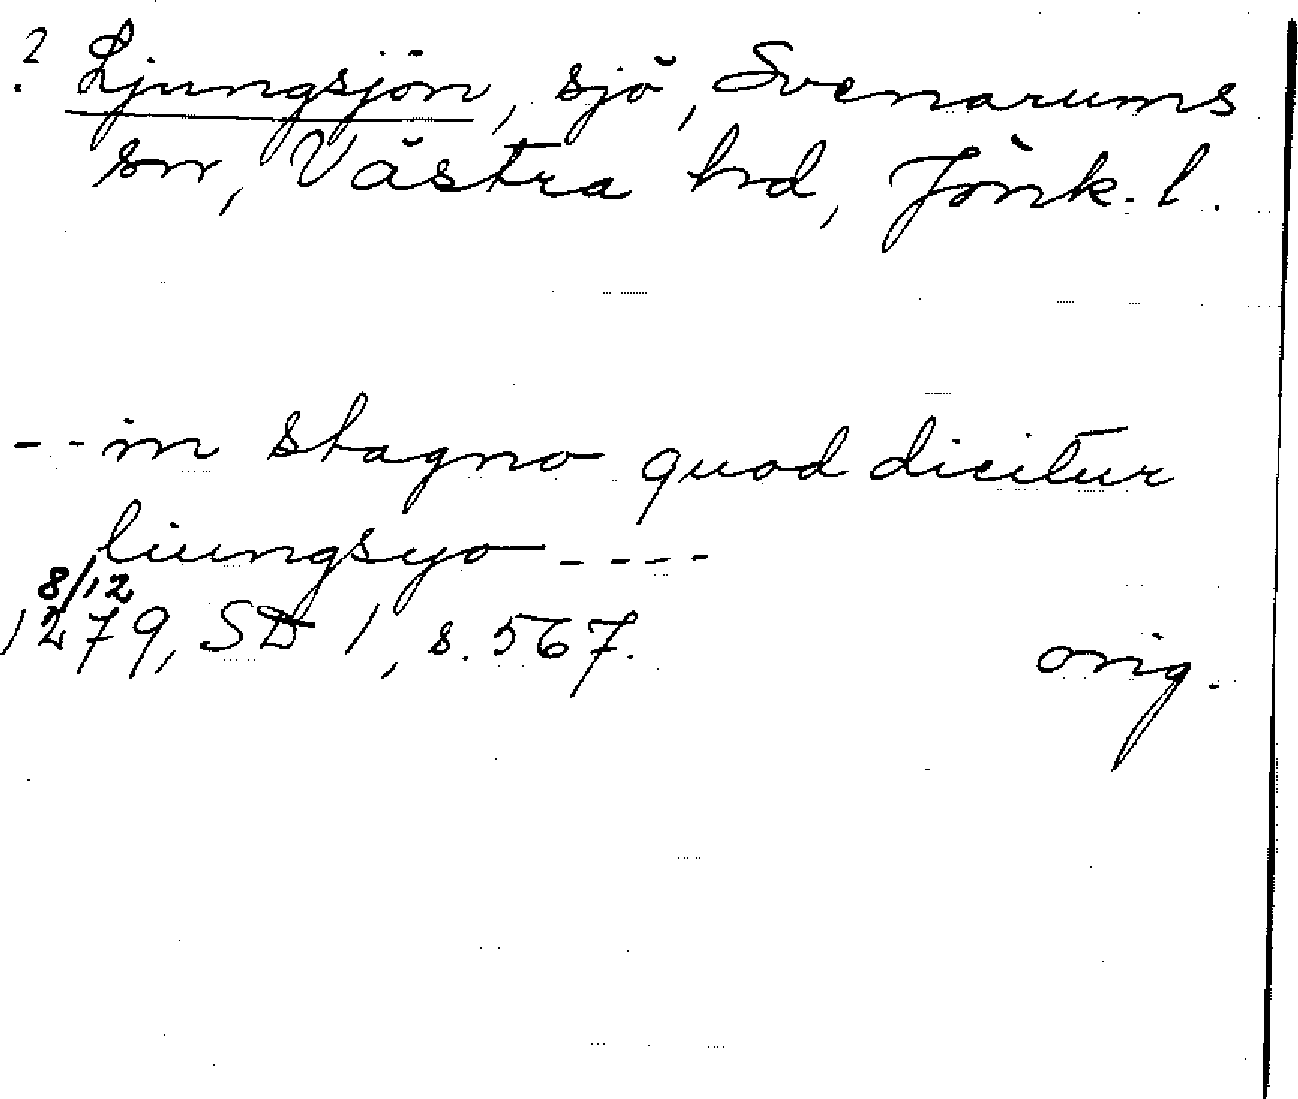 ? Ljungsjön, sjö, Svenarums
sn, Västra hd, Jönk. l.
-- in stagno quod dicitur
liungsyo ----
8/12
1279, SD 1, s. 567.
orig.